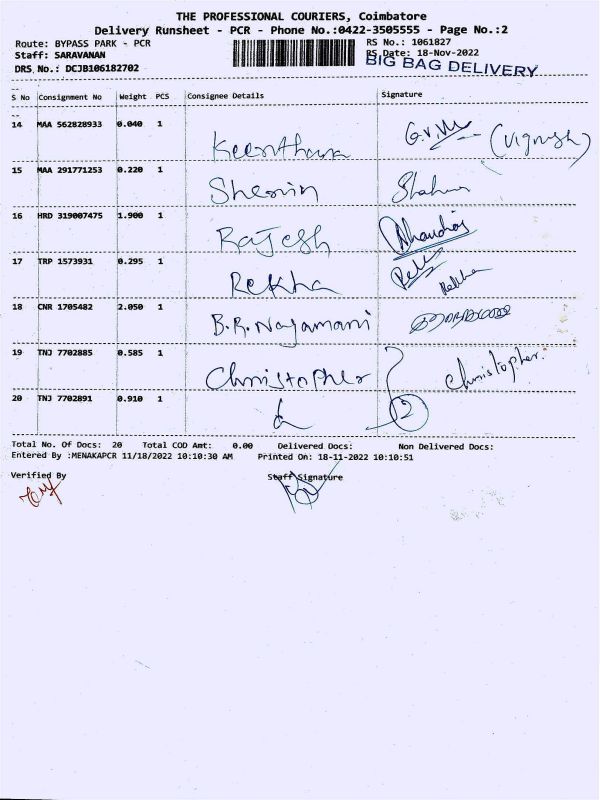 THE PROFESSIONAL COURIERS, Coimbatore
Delivery Runsheet - PCR - Phone No.:0422-3505555 - Page No.:2
Route: BYPASS PARK - PCR
RS No.: 1061827
Staff: SARAVANAN
RS Date: 18-Nov-2022
DRS No.: DCJB106182702
BIG BAG DELIVERY
S No Consignment No Weight PCS Consignee Details Signature
--
14 MAA 562828933 0.040 1 Keerthana G.V.M (Vignesh)
15 MAA 291771253 0.220 1 Sherin
16 HRD 319007475 1.900 1 Rajesh
17 TRP 1573931 0.295 1 Rekha Rekha
18 CNR 1705482 2.050 1 B.R. Nagamani
19 TNJ 7702885 0.585 1 Christopher Christopher
20 TNJ 7702891 0.910 1 2
Total No. Of Docs: 20 Total COD Amt: 0.00 Delivered Docs: Non Delivered Docs:
Entered By :MENAKAPCR 11/18/2022 10:10:30 AM Printed On: 18-11-2022 10:10:51
Verified By Staff Signature